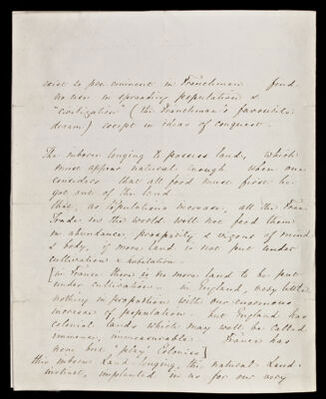 exist so pre-eminent in Frenchmen find
no use in spreading population &
"civilization" (the Frenchman's favourite
dream) except in ideas of conquest.
The inborn longing to possess land, which
must appear natural enough when one
considers that all food must first be
got out of the land
this, as population increases, all the Free
Trade in the world will not feed them
in abundance, prosperity & vigour of mind
& body, if more land is not put under
cultivation & habitation
[in France there is no more land to be put
under cultivation - in England, very little
nothing in proportion with our enormous
increase of population - but England has
colonial lands which may well be called
immense, immeasurable. France has
none but "play" Colonies]
this inborn Land-longing, this natural Land-
instinct, implanted in us for our very